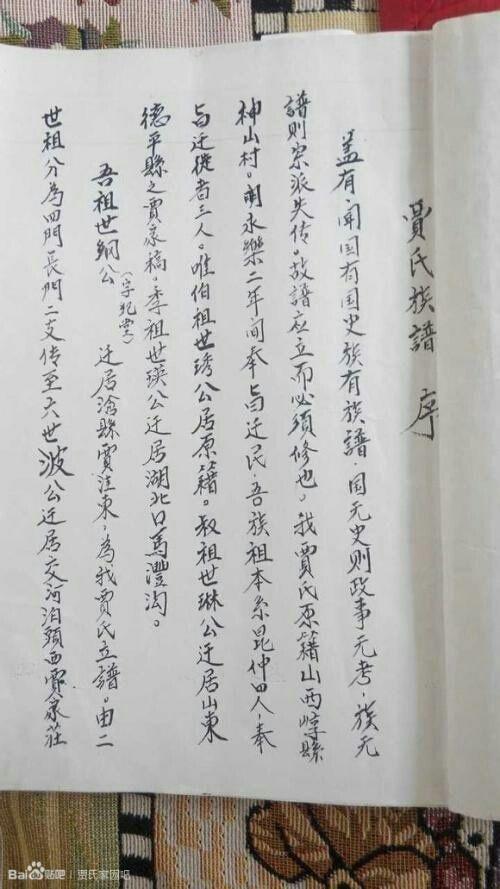 賈氏族譜 序
盖有闻国有国史族有族譜.国无史则政事无考.族无
譜则宗派失传。故譜应立而必须修也。我賈氏原籍山西崞縣
神山村。明永樂二年间奉旨迁民.吾族祖本系昆仲四人.奉
旨迁徙者三人。唯伯祖世琇公居原籍。叔祖世琳公迁居山東
德平縣之賈家.季祖世瑛公迁居湖北口馬灃沟。
吾祖世綱公(字) 迁居滄縣賈洼東.為我賈氏立譜。由二
世祖分為四門長門二支传至六世波公迁居交河泊頭西賈家莊
Bai百度贴吧 | 贾氏家园吧